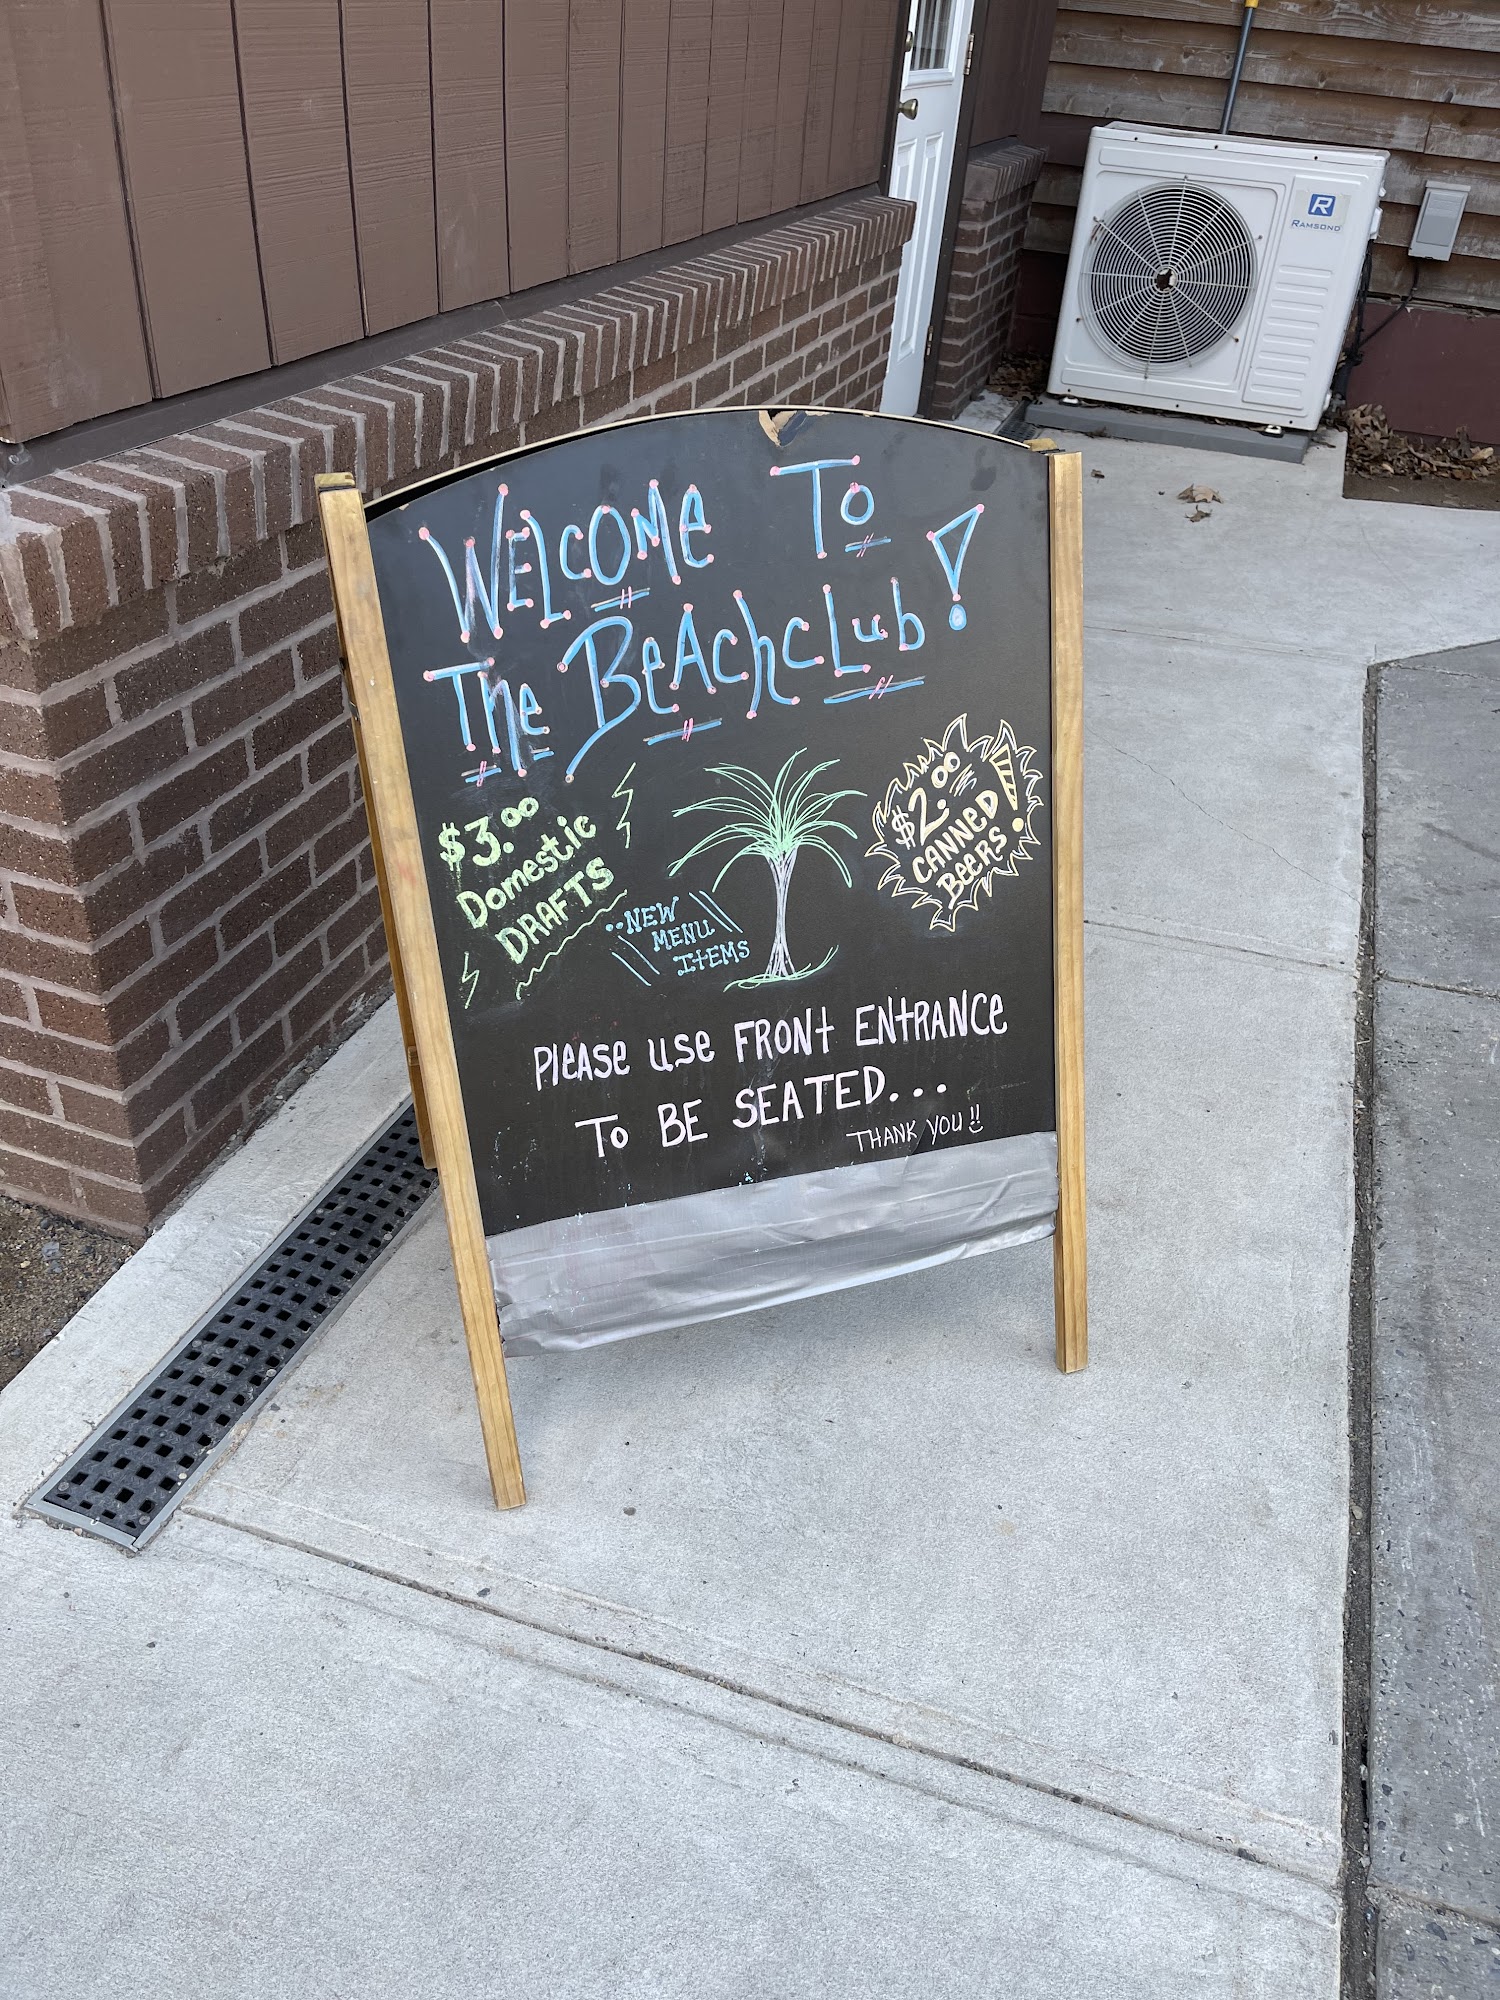 WELCOME TO
THE BEACHCLUB!
$3.00
Domestic
DRAFTS
$2.00
CANNED
BEERS!
NEW
MENU
ITEMS
PLEASE USE FRONT ENTRANCE
TO BE SEATED...
THANK YOU!!
R
RAMSOND